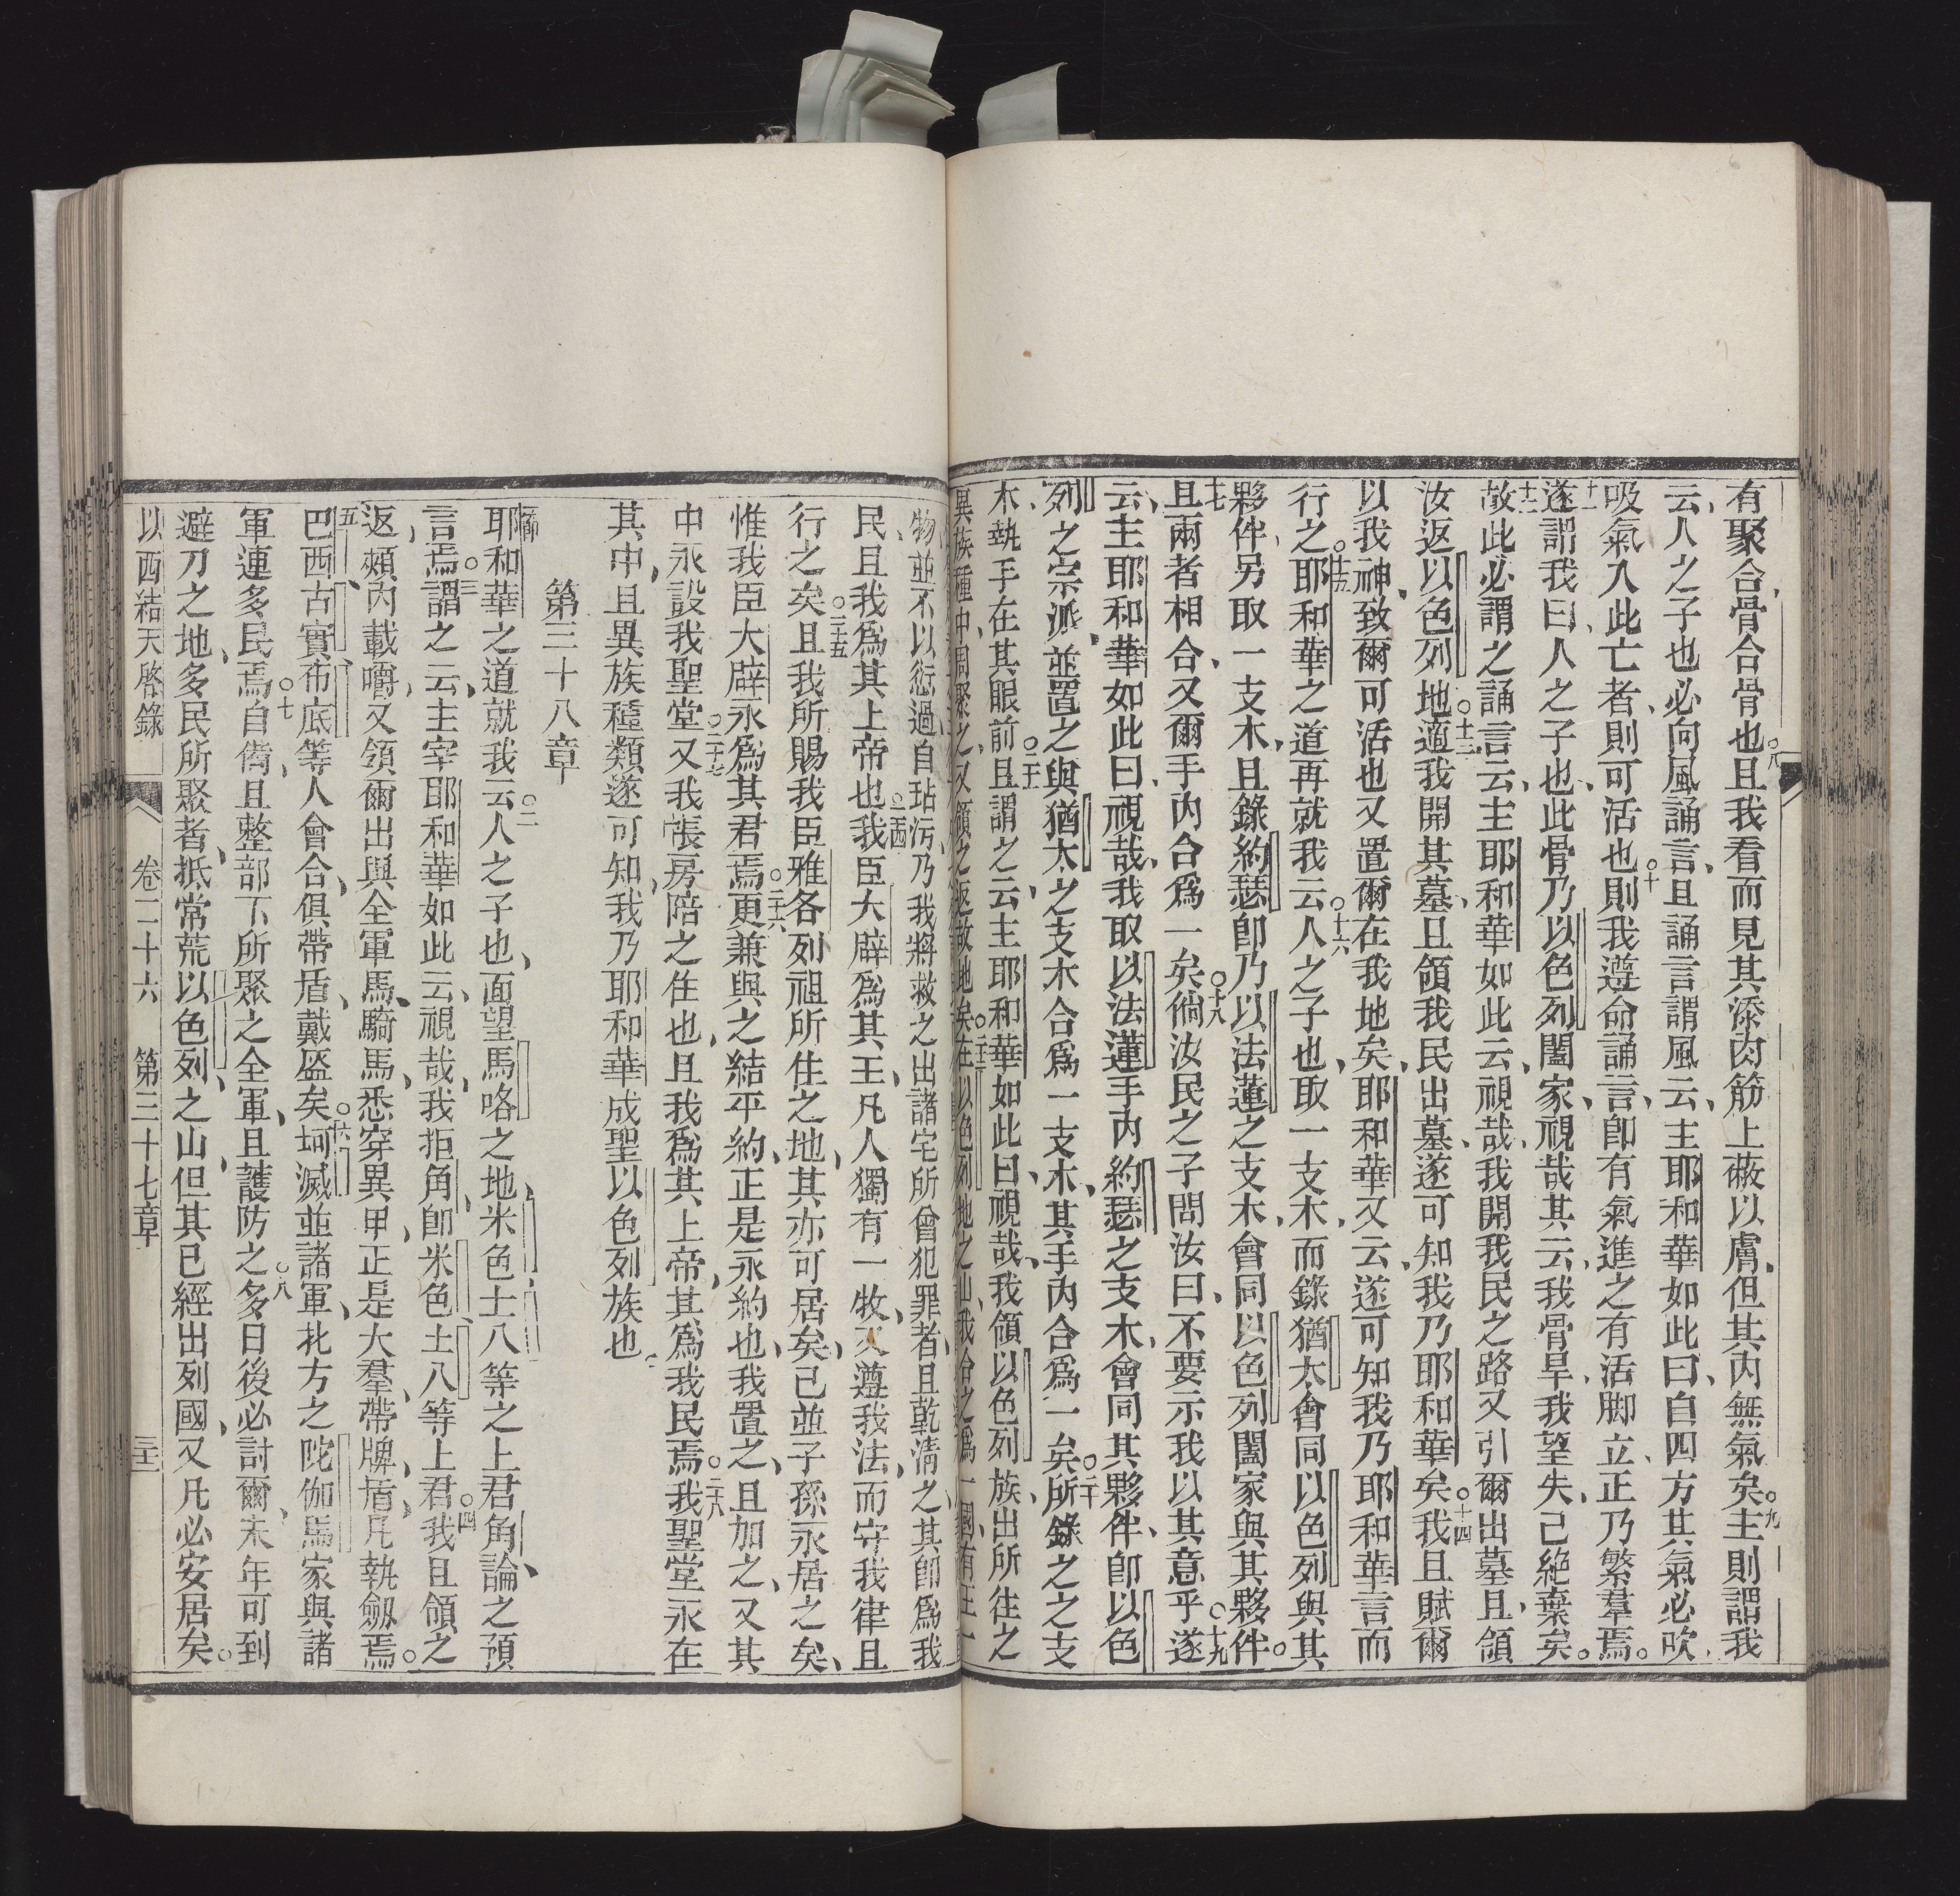 有聚合骨合骨也○八且我看而見其添肉筋上蔽以膚但其內無氣矣○九主則謂我
云人之子也必向風誦言且誦言謂風云主耶和華如此曰自四方其氣必吹
吸氣入此亡者則可活也○十則我遵命誦言卽有氣進之有活脚立正乃繁羣焉○
十一遂謂我曰人之子也此骨乃以色列闔家視哉其云我骨旱我望失己絕棄矣○
十二故此必謂之誦言云主耶和華如此云視哉我開我民之路又引爾出墓且領
汝返以色列地○十三適我開其墓且領我民出墓遂可知我乃耶和華矣○十四我且賦爾
以我神致爾可活也又置爾在我地矣耶和華又云遂可知我乃耶和華言而
行之○十五耶和華之道再就我云○十六人之子也取一支木而錄猶太會同以色列與其
夥伴另取一支木且錄約瑟卽乃以法蓮之支木會同以色列闔家與其夥伴○
十七且兩者相合又爾手內合爲一矣○十八倘汝民之子問汝曰不要示我以其意乎○十九遂
云主耶和華如此曰視哉我取以法蓮手內約瑟之支木會同其夥伴卽以色
列之宗派並置之與猶太之支木合爲一支木其手內合爲一矣○二十所錄之之支
木執手在其眼前○二十一且謂之云主耶和華如此曰視哉我領以色列族出所往之
異族種中周聚之又領之返故地矣○二十二在以色列地之山我合之爲一國有王一
物並不以愆過自玷污乃我將救之出諸宅所曾犯罪者且乾淸之其卽爲我
民且我爲其上帝也○二十四我臣大辟爲其王凡人獨有一牧又遵我法而守我律且
行之矣○二十五且我所賜我臣雅各列祖所住之地其亦可居矣己並子孫永居之矣
惟我臣大辟永爲其君焉○二十六更兼與之結平約正是永約也我置之且加之又其
中永設我聖堂○二十七又我帳房陪之住也且我爲其上帝其爲我民焉○二十八我聖堂永在
其中且異族種類遂可知我乃耶和華成聖以色列族也
第三十八章
耶和華之道就我云○二人之子也面望馬咯之地米色土八等之上君角論之預
言焉○三謂之云主宰耶和華如此云視哉我拒角卽米色土八等上君○四我且領之
返頰內載嚼又領爾出與全軍馬騎馬悉穿異甲正是大羣帶牌盾凡執劔焉○
五巴西古實布底等人會合俱帶盾戴盔矣○六坷滅並諸軍北方之陀伽馬家與諸
軍連多民焉○七自備且整部下所聚之全軍且護防之○八多日後必討爾末年可到
避刀之地多民所聚者抵常荒以色列之山但其已經出列國又凡必安居矣○
以西結天啓錄　卷二十六　第三十七章　三十二